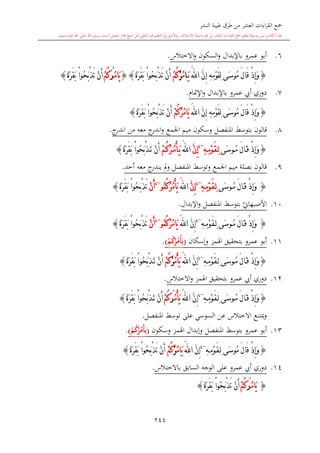 جمع القراءات العشر من طرق طيبة النشر
٦. أبو عمرو بالإبدال والسكون والاختلاس.
﴿ وَإِذْ قَالَ مُوسَى لِقَوْمِهِ إِنَّ اللَّهَ يَامُرُكُمْ أَنْ تَذْبَحُوا بَقَرَةً ﴾ ﴿ يَامُرُكُمْ أَنْ تَذْبَحُوا بَقَرَةً ﴾
٧. دوري أبي عمرو بالإبدال والإتمام.
﴿ وَإِذْ قَالَ مُوسَى لِقَوْمِهِ إِنَّ اللَّهَ يَامُرُكُمْ أَنْ تَذْبَحُوا بَقَرَةً ﴾
٨. قالون بتوسط المنفصل وسكون ميم الجمع واندرج معه من اندرج.
﴿ وَإِذْ قَالَ مُوسَى لِقَوْمِهِ إِنَّ اللَّهَ يَأْمُرُكُمْ أَنْ تَذْبَحُوا بَقَرَةً ﴾
٩. قالون بصلة ميم الجمع وتوسط المنفصل ولم يندرج معه أحد.
﴿ وَإِذْ قَالَ مُوسَى لِقَوْمِهِ إِنَّ اللَّهَ يَأْمُرُكُمُو أَنْ تَذْبَحُوا بَقَرَةً ﴾
١٠. الأصبهاني بتوسط المنفصل والإبدال.
﴿ وَإِذْ قَالَ مُوسَى لِقَوْمِهِ إِنَّ اللَّهَ يَامُرُكُمُو أَنْ تَذْبَحُوا بَقَرَةً ﴾
١١. أبو عمرو بتحقيق الهمز وإسكان (يَأْمُرْكُمْ).
﴿ وَإِذْ قَالَ مُوسَى لِقَوْمِهِ إِنَّ اللَّهَ يَأْمُرْكُمْ أَنْ تَذْبَحُوا بَقَرَةً ﴾
١٢. دوري أبي عمرو بتحقيق الهمز والاختلاس.
﴿ وَإِذْ قَالَ مُوسَى لِقَوْمِهِ إِنَّ اللَّهَ يَأْمُرُكُمْ أَنْ تَذْبَحُوا بَقَرَةً ﴾
ويمتنع الاختلاس عن السوسي على توسط المنفصل.
١٣. أبو عمرو بتوسط المنفصل وإبدال الهمز وسكون (يَأْمُرْكُمْ).
﴿ وَإِذْ قَالَ مُوسَى لِقَوْمِهِ إِنَّ اللَّهَ يَامُرْكُمْ أَنْ تَذْبَحُوا بَقَرَةً ﴾
١٤. دوري أبي عمرو على الوجه السابق بالاختلاس.
﴿ يَامُرُكُمْ أَنْ تَذْبَحُوا بَقَرَةً ﴾
٢٤٤